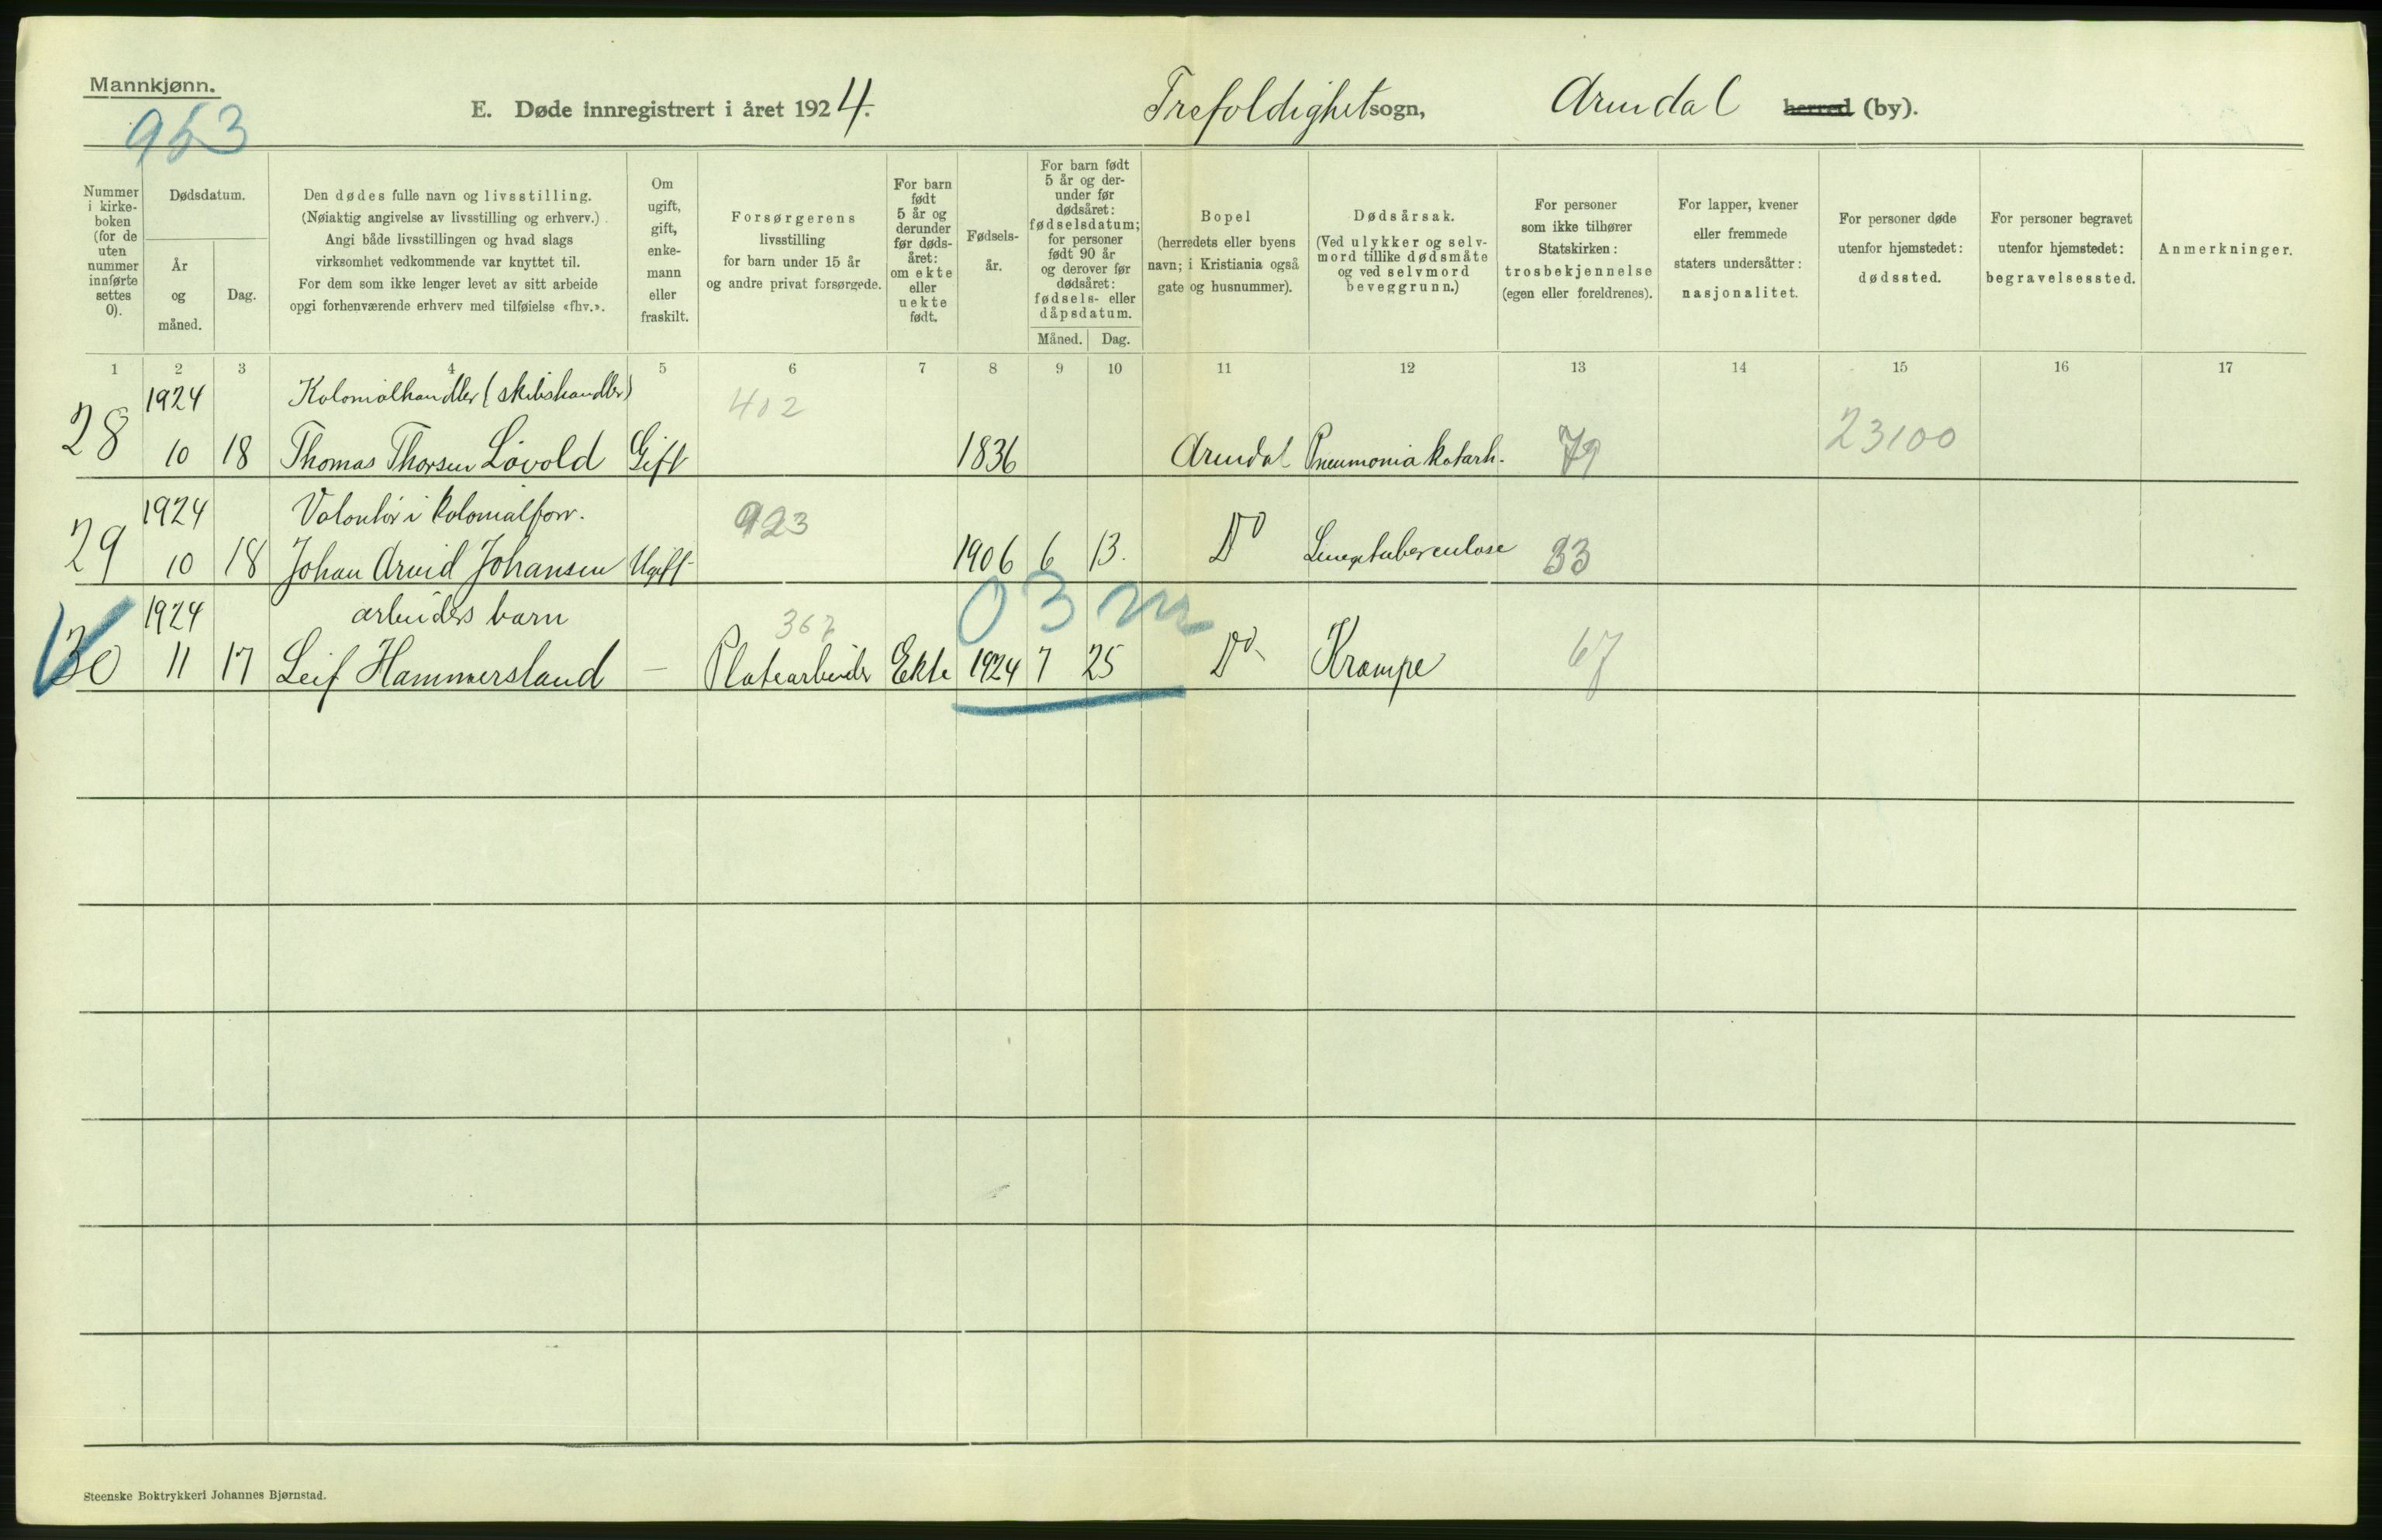 Mannkjønn.
953
E. Døde innregistrert i året 1924.
Trefoldighetsogn,
Arendal
herred (by).
Nummer i kirke-boken (for de uten nummer innførte settes 0).
Dødsdatum.
År og måned.
Dag.
Den dødes fulle navn og livsstilling.
(Nøiaktig angivelse av livsstilling og erhverv.)
Angi både livsstillingen og hvad slags
virksomhet vedkommende var knyttet til.
For dem som ikke lenger levet av sitt arbeide
opgi forhenværende erhverv med tilføielse «fhv.».
Om ugift, gift, enke-mann eller fraskilt.
Forsørgerens
livsstilling
for barn under 15 år
og andre privat forsørgede.
For barn født 5 år og derunder før døds-året: om ekte eller uekte født.
Fødsels-år.
For barn født 5 år og der-under før dødsåret: fødselsdatum; for personer født 90 år og derover før dødsåret: fødsels- eller dåpsdatum.
Måned.
Dag.
Bopel
(herredets eller byens
navn; i Kristiania også
gate og husnummer).
Dødsårsak.
(Ved ulykker og selv-
mord tillike dødsmåte
og ved selvmord
beveggrunn.)
For personer
som ikke tilhører
Statskirken:
trosbekjennelse
(egen eller foreldrenes).
For lapper, kvener
eller fremmede
staters undersåtter:
nasjonalitet.
For personer døde
utenfor hjemstedet:
dødssted.
For personer begravet
utenfor hjemstedet:
begravelsessted.
Anmerkninger.
1 2 3 4 5 6 7 8 9 10 11 12 13 14 15 16 17
1924 Kolonialhandler (skibshandler) 402
28 10 18 Thomas Thorsen Løvold Gift 1836 Arendal Pneumonia katarh. 79 23100
1924 Volontør i kolonialforr. 923
29 10 18 Johan Arvid Johansen Ugift 1906 6 13. Do Lungetuberculose 33
1924 arbeiders barn 367 03m
30 11 17 Leif Hammersland — Platearbeider Ekte 1924 7 25 Do Krampe 67
Steenske Boktrykkeri Johannes Bjørnstad.